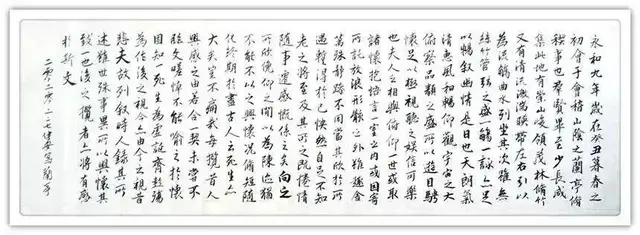 永和九年歲在癸丑暮春之
初會于會稽山陰之蘭亭脩
稧事也羣賢畢至少長咸
集此地有崇山峻領茂林脩竹
又有清流激湍暎帶左右引以
為流觴曲水列坐其次雖無
絲竹管弦之盛一觴一詠亦足
以暢叙幽情是日也天朗氣
清惠風和暢仰觀宇宙之大
俯察品類之盛所以遊目騁
懷足以極視聽之娛信可樂
也夫人之相與俯仰一世或取
諸懷抱悟言一室之內或因寄
所託放浪形骸之外雖趣舍
萬殊靜躁不同當其欣於所
遇暫得於己快然自足不知
老之將至及其所之既惓情
隨事遷感慨係之矣向之
所欣俛仰之閒以為陳迹猶
不能不以之興懷況脩短隨
化終期於盡古人云死生亦
大矣豈不痛哉每攬昔人
興感之由若合一契未嘗不
臨文嗟悼不能喻之於懷
固知一死生為虛誕齊彭殤
為妄作後之視今亦由今之視昔
悲夫故列叙時人錄其所
述雖世殊事異所以興懷其
致一也後之攬者亦將有感
於斯文